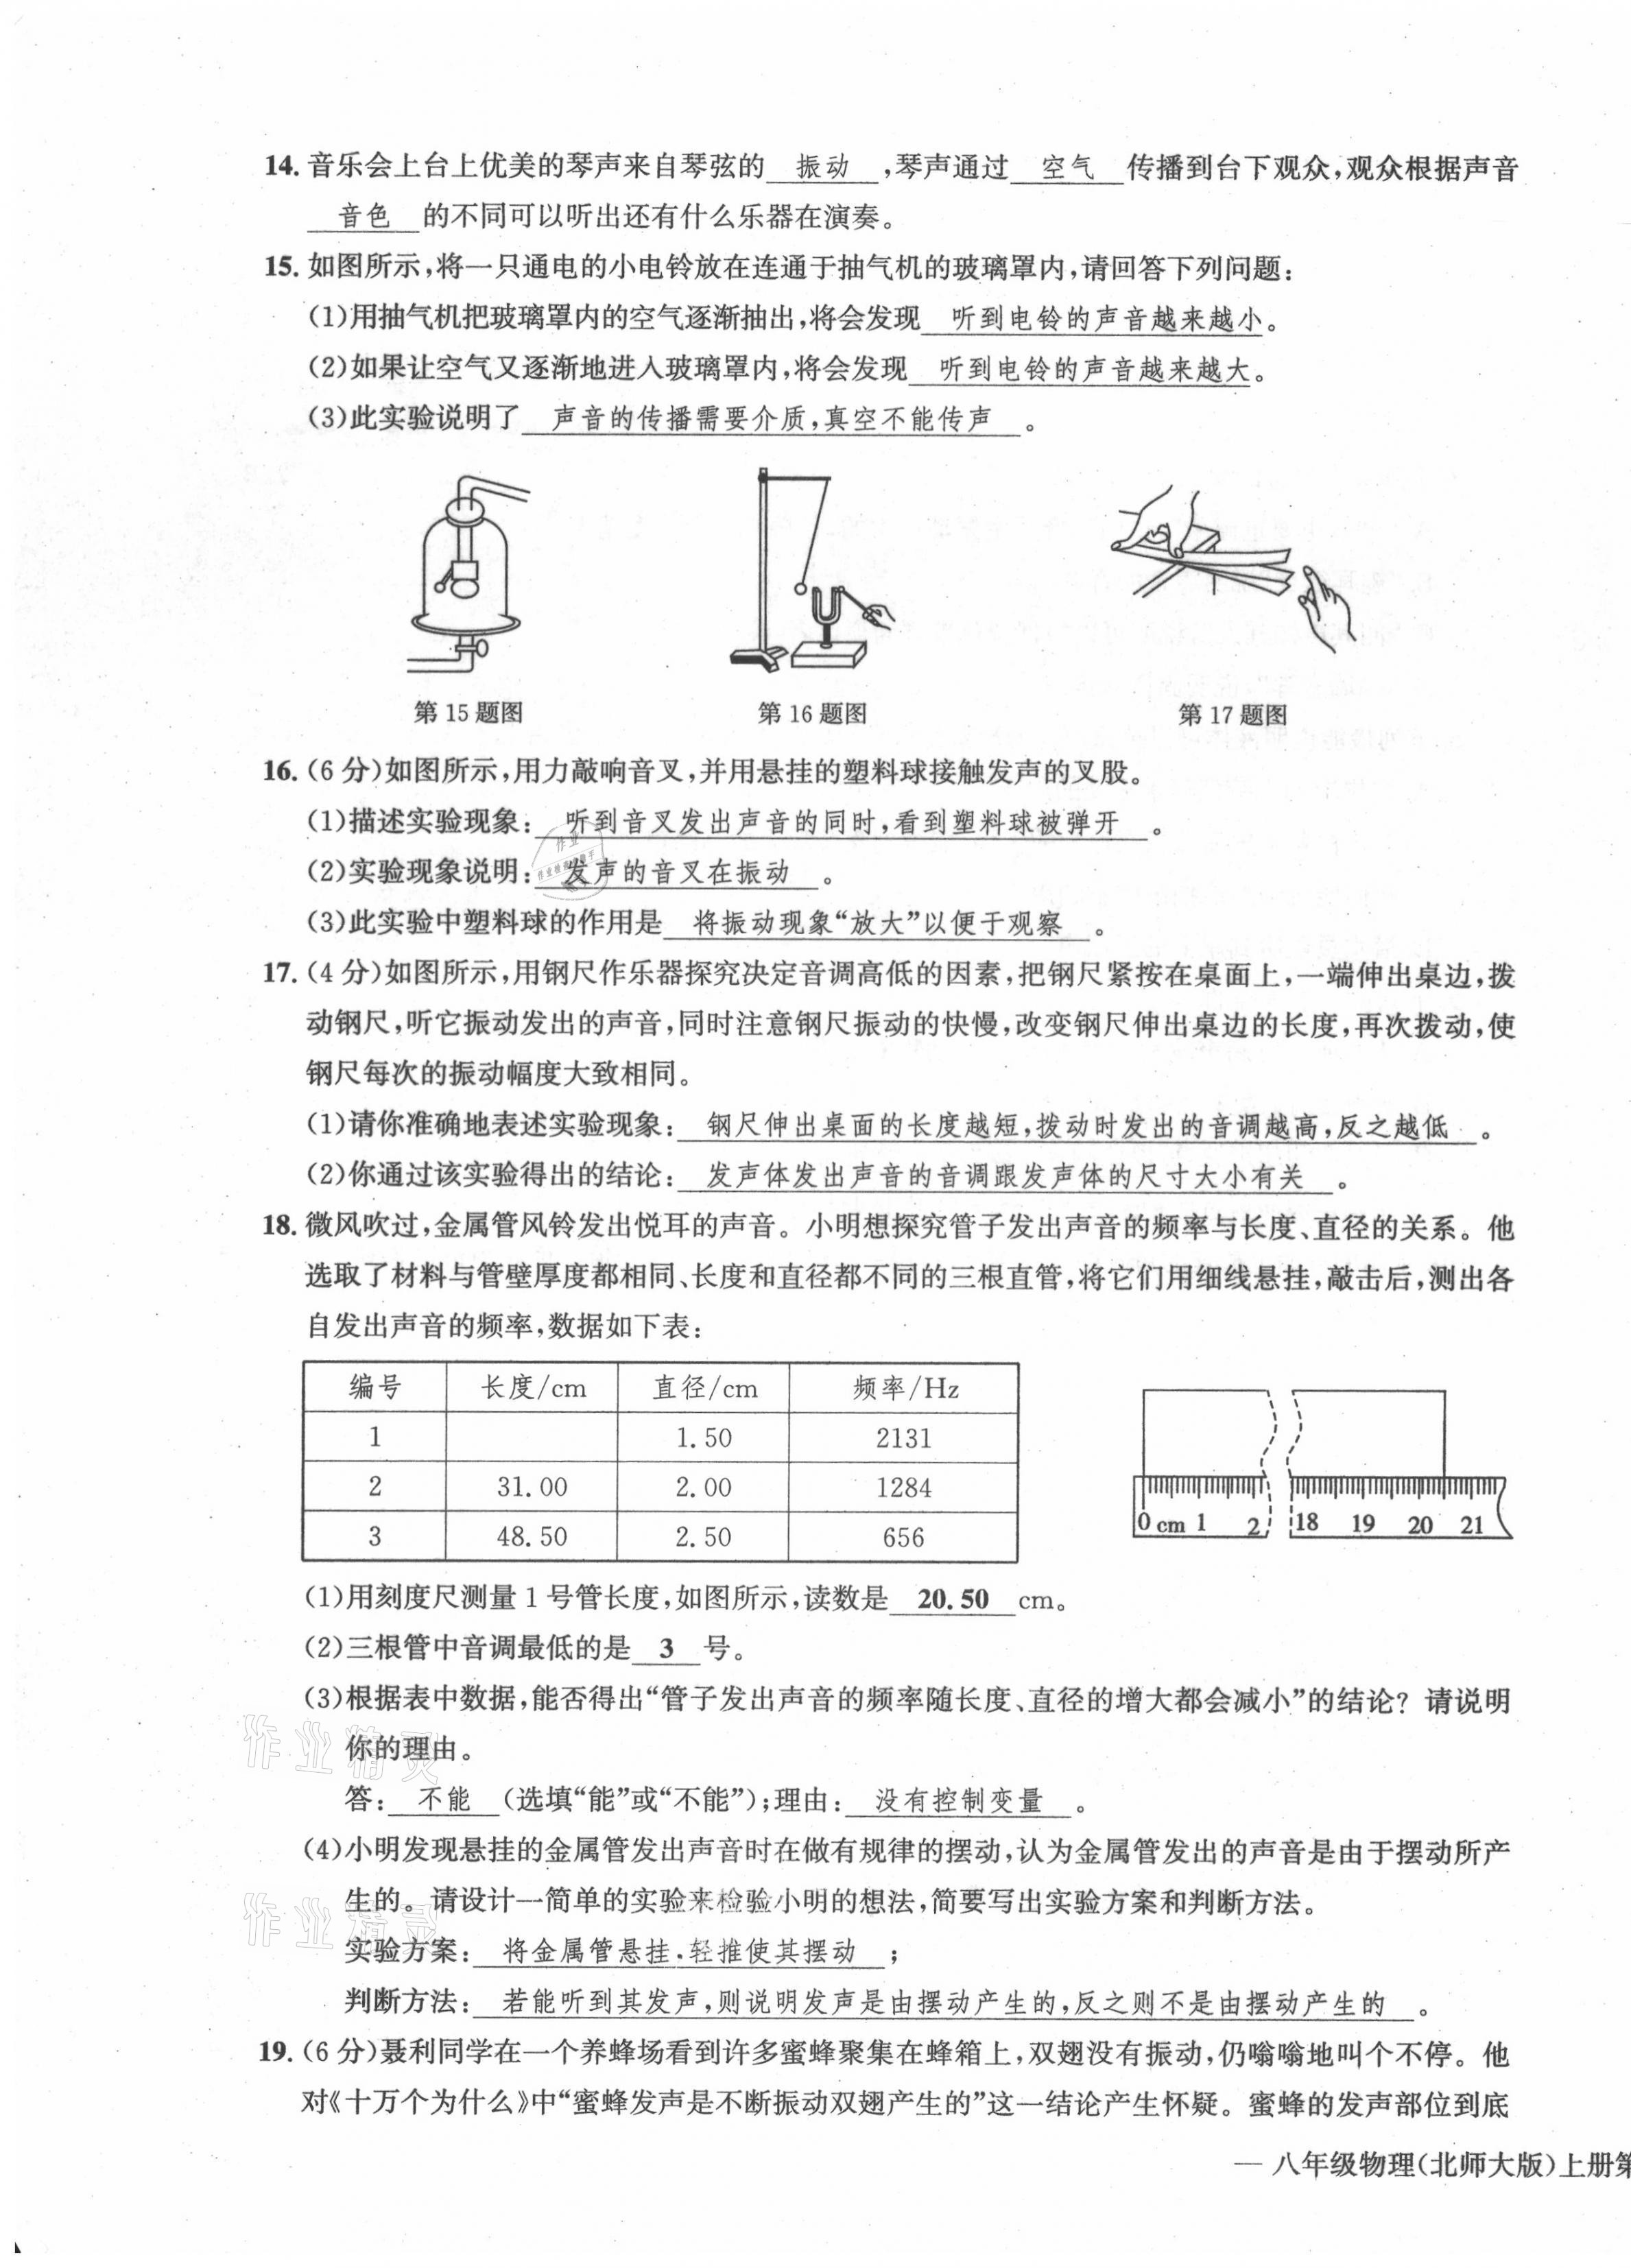 14. 音乐会上台上优美的琴声来自琴弦的 振动 ,琴声通过 空气 传播到台下观众,观众根据声音
音色 的不同可以听出还有什么乐器在演奏。
15. 如图所示,将一只通电的小电铃放在连通于抽气机的玻璃罩内,请回答下列问题:
(1)用抽气机把玻璃罩内的空气逐渐抽出,将会发现 听到电铃的声音越来越小。
(2)如果让空气又逐渐地进入玻璃罩内,将会发现 听到电铃的声音越来越大。
(3)此实验说明了 声音的传播需要介质,真空不能传声 。
第15题图 第16题图 第17题图
16. (6分)如图所示,用力敲响音叉,并用悬挂的塑料球接触发声的叉股。
(1)描述实验现象: 听到音叉发出声音的同时,看到塑料球被弹开 。
(2)实验现象说明: 发声的音叉在振动 。
(3)此实验中塑料球的作用是 将振动现象“放大”以便于观察 。
17. (4分)如图所示,用钢尺作乐器探究决定音调高低的因素,把钢尺紧按在桌面上,一端伸出桌边,拨
动钢尺,听它振动发出的声音,同时注意钢尺振动的快慢,改变钢尺伸出桌边的长度,再次拨动,使
钢尺每次的振动幅度大致相同。
(1)请你准确地表述实验现象: 钢尺伸出桌面的长度越短,拨动时发出的音调越高,反之越低 。
(2)你通过该实验得出的结论: 发声体发出声音的音调跟发声体的尺寸大小有关 。
18. 微风吹过,金属管风铃发出悦耳的声音。小明想探究管子发出声音的频率与长度、直径的关系。他
选取了材料与管壁厚度都相同、长度和直径都不同的三根直管,将它们用细线悬挂,敲击后,测出各
自发出声音的频率,数据如下表:
编号 长度/cm 直径/cm 频率/Hz
1 1.50 2131
2 31.00 2.00 1284
3 48.50 2.50 656
0 cm 1 2 18 19 20 21
(1)用刻度尺测量1号管长度,如图所示,读数是 20.50 cm。
(2)三根管中音调最低的是 3 号。
(3)根据表中数据,能否得出“管子发出声音的频率随长度、直径的增大都会减小”的结论? 请说明
你的理由。
答: 不能 (选填“能”或“不能”);理由: 没有控制变量 。
(4)小明发现悬挂的金属管发出声音时在做有规律的摆动,认为金属管发出的声音是由于摆动所产
生的。请设计一简单的实验来检验小明的想法,简要写出实验方案和判断方法。
实验方案: 将金属管悬挂,轻推使其摆动 ;
判断方法: 若能听到其发声,则说明发声是由摆动产生的,反之则不是由摆动产生的 。
19. (6分)聂利同学在一个养蜂场看到许多蜜蜂聚集在蜂箱上,双翅没有振动,仍嗡嗡地叫个不停。他
对《十万个为什么》中“蜜蜂发声是不断振动双翅产生的”这一结论产生怀疑。蜜蜂的发声部位到底
— 八年级物理(北师大版)上册第
作业精灵
作业精灵